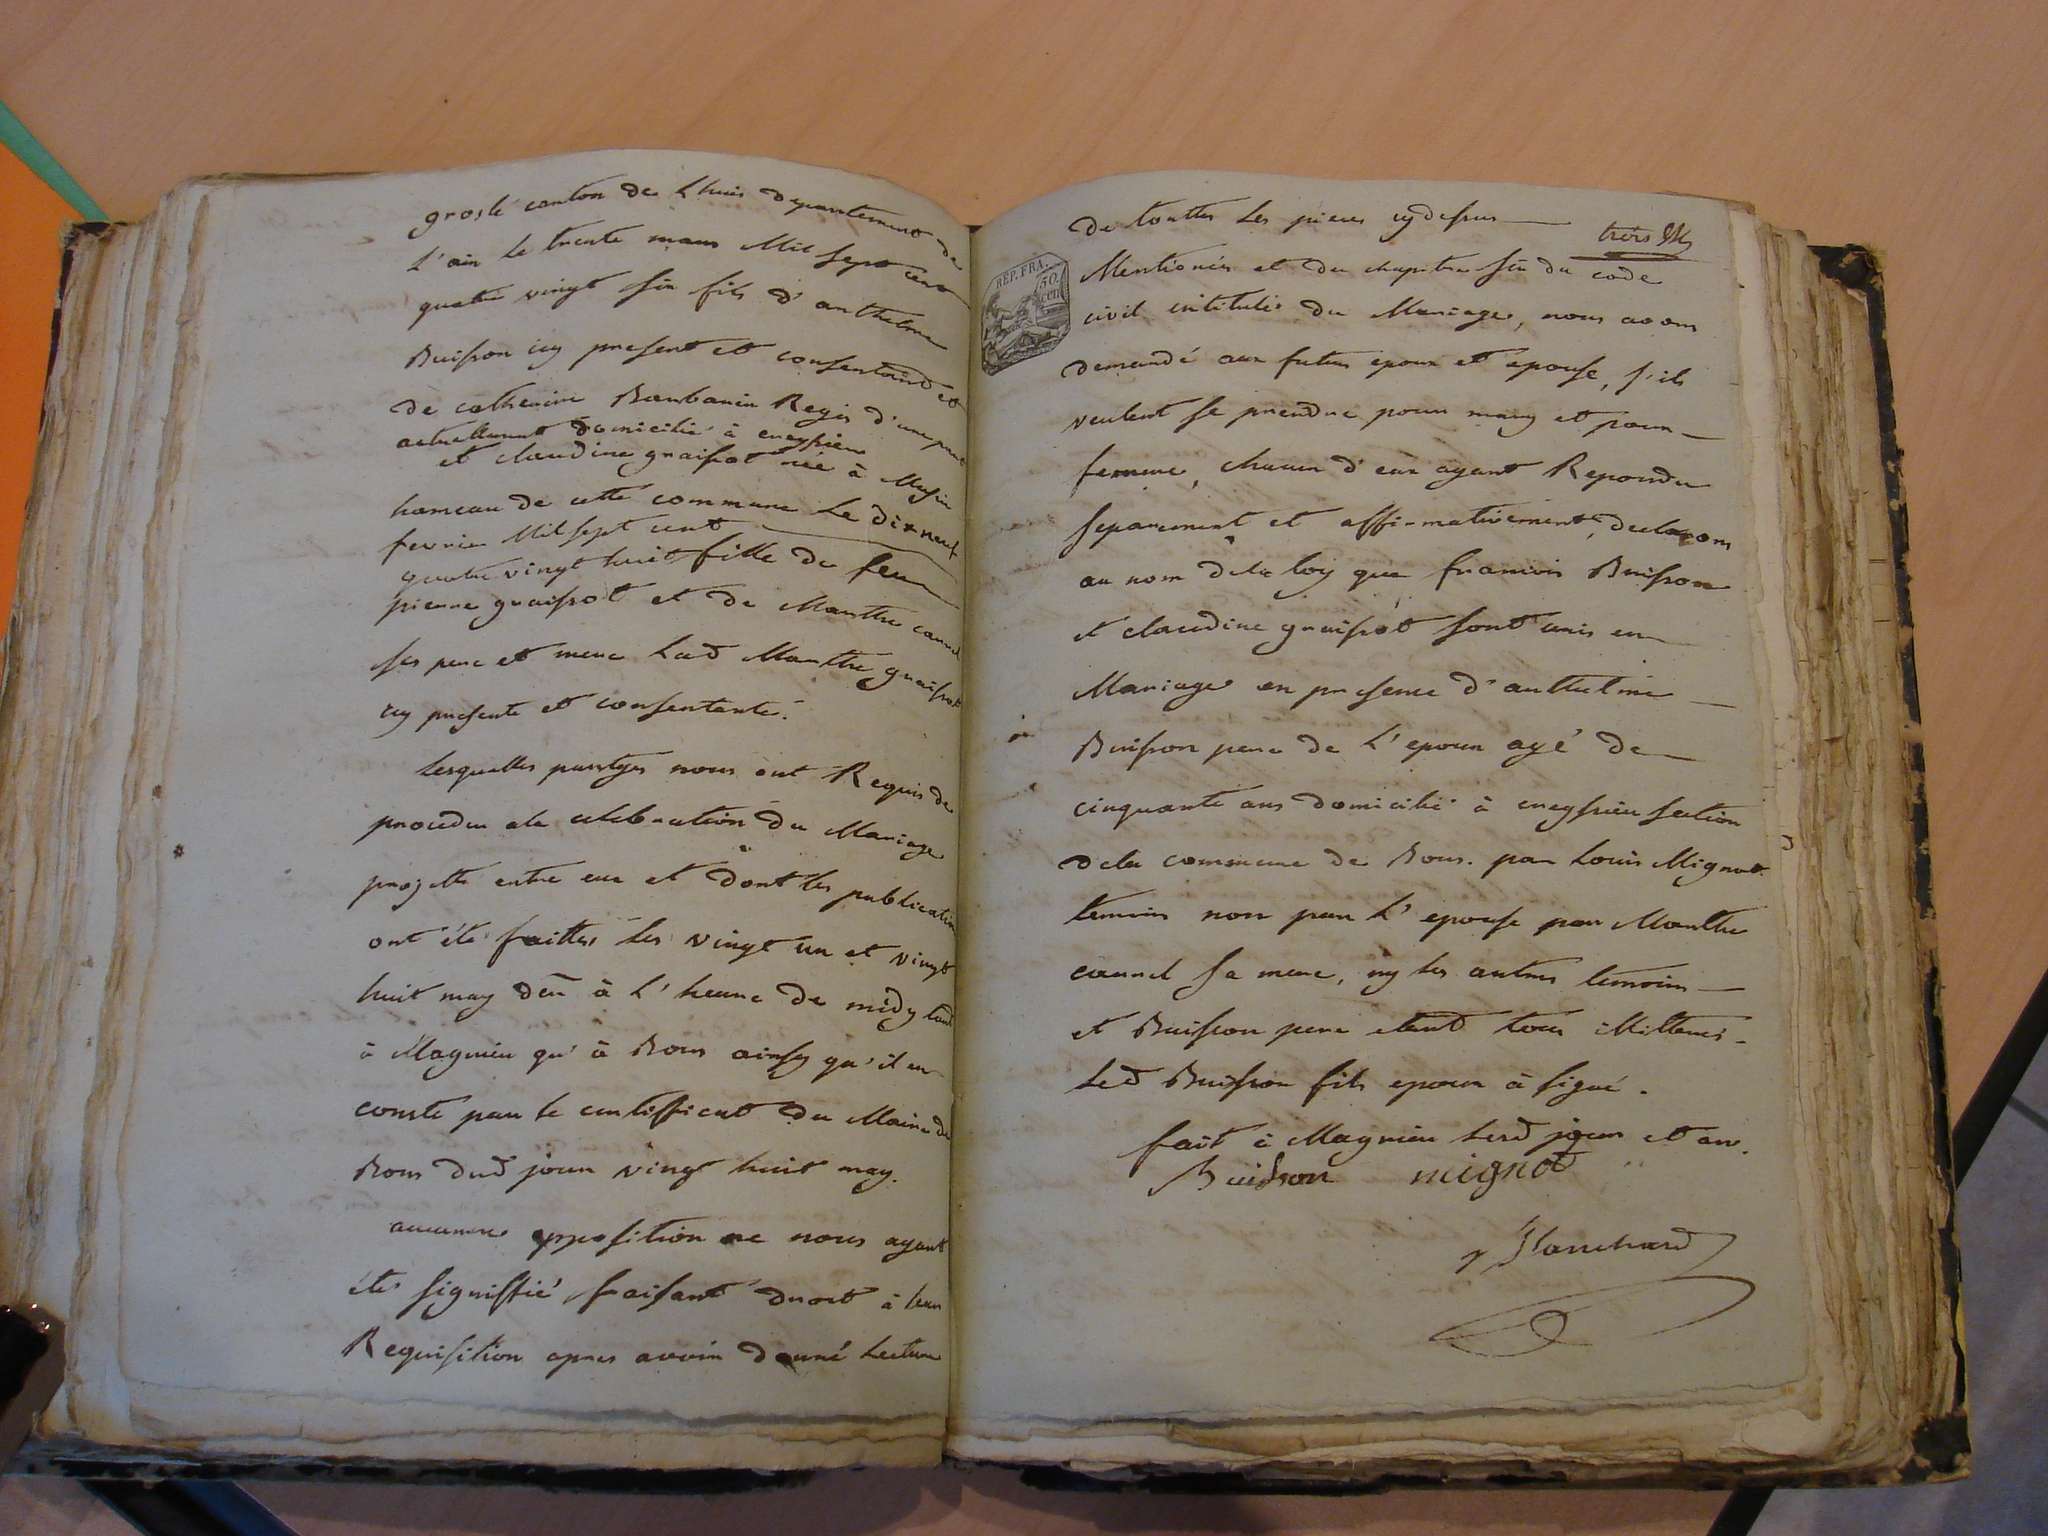 groslé canton de Lhuis departement de
L'ain le trente mars Mil sept cent
quatre vingt six fils d'anthelme
Buisson icy present et consentant et
de catherine Barbarin Regis d'une part
actuellement domicilié à eneyssieu
et claudine graissot née à Musin
hameau de cette commune Le dix neuf
fevrier Mil sept cent
quatre vingt huit fille de feu
pierre graissot et de Marthe
ses pere et mere Lad Marthe graissot
icy presente et consentante.
Lesquelles partyes nous ont Requis de
proceder ala celebration du Mariage
projetté entre eux et dont les publication
ont été faittes les vingt un et vingt
huit may der à L'heure de midy tant
à Magnieu qu'à Bons ainsy qu'il en
conste par le certifficat du Maire de
Bons dud jour vingt huit may.
aucune opposition ne nous ayant
été signiffié, faisant droit à leur
Requisition apres avoir donné Lecture
de touttes Les pieces cy dessus
REP. FRA.
50
cen
Mentionés et du chapitre six du code
civil intitulé du Mariage, nous avons
demandé aux futurs epoux et epouse, s'ils
veulent se prendre pour mary et pour
femme, chacun d'eux ayant Repondu
separement et affirmativement, declarons
au nom dela loy que francois Buisson
et claudine graissot sont unis en
Mariage en presence d'anthelme
Buisson pere de L'epoux agé de
cinquante ans domicilié à eneyssieu section
dela commune de Bons. par Louis Mignot
temoin non par L'epouse par Marthe
sa mere, ny les autres temoins
et Buisson pere etant tous Illiteres.
Led Buisson fils epoux à signé.
fait à Magnieu Lesd jour et an.
Buisson mignot
Blanchard